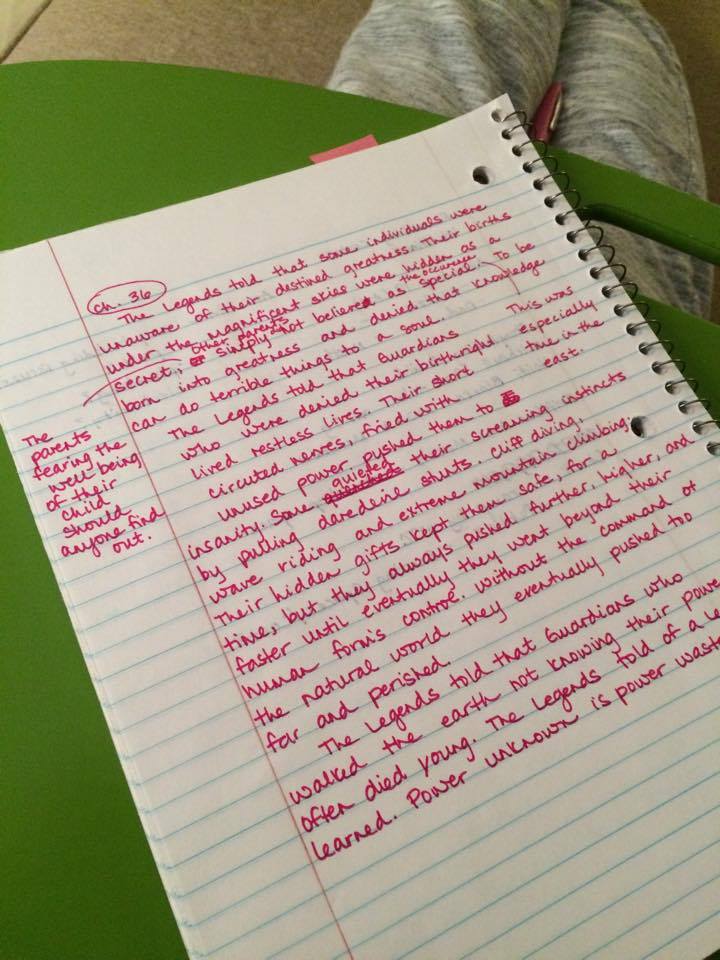 ch. 36
The Legends told that some individuals were
unaware of their destined greatness. Their births
under the magnificent skies were hidden as a
secret; other parents simply not believed as the occurence special. To be
born into greatness and denied that knowledge
can do terrible things to a soul.
The Legends told that Guardians This was
who were denied their birthright especially
lived restless lives. Their short true in the
circuted nerves, fried with east.
unused power pushed them to
insanity. Some quieted their screaming instincts
by pulling daredevine stunts. Cliff diving,
wave riding and extreme mountain climbing.
Their hidden gifts kept them safe, for a
time, but they always pushed further, higher, and
faster until eventually they went beyond their
human form's control. Without the command of
the natural world they eventually pushed too
far and perished.
The Legends told that Guardians who
walked the earth not knowing their power
often died young. The Legends told of a
learned. Power unknown is power
The
parents
fearing the
well-being
of their
child
should
anyone find
out.